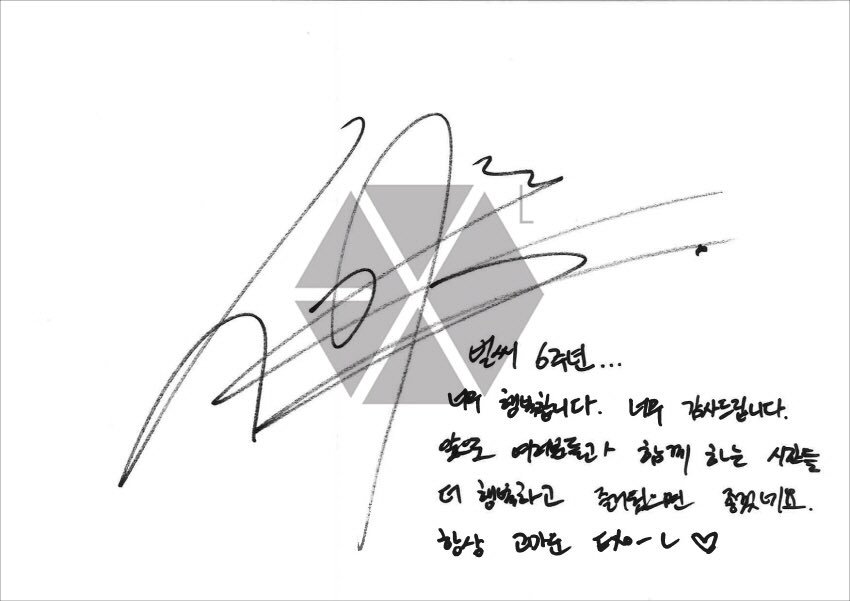 L
벌써 6주년...
너무 행복합니다. 너무 감사드립니다.
앞으로 여러분들과 함께 하는 시간들
더 행복하고 즐거웠으면 좋겠네요.
항상 고마운 EXO-L ♡